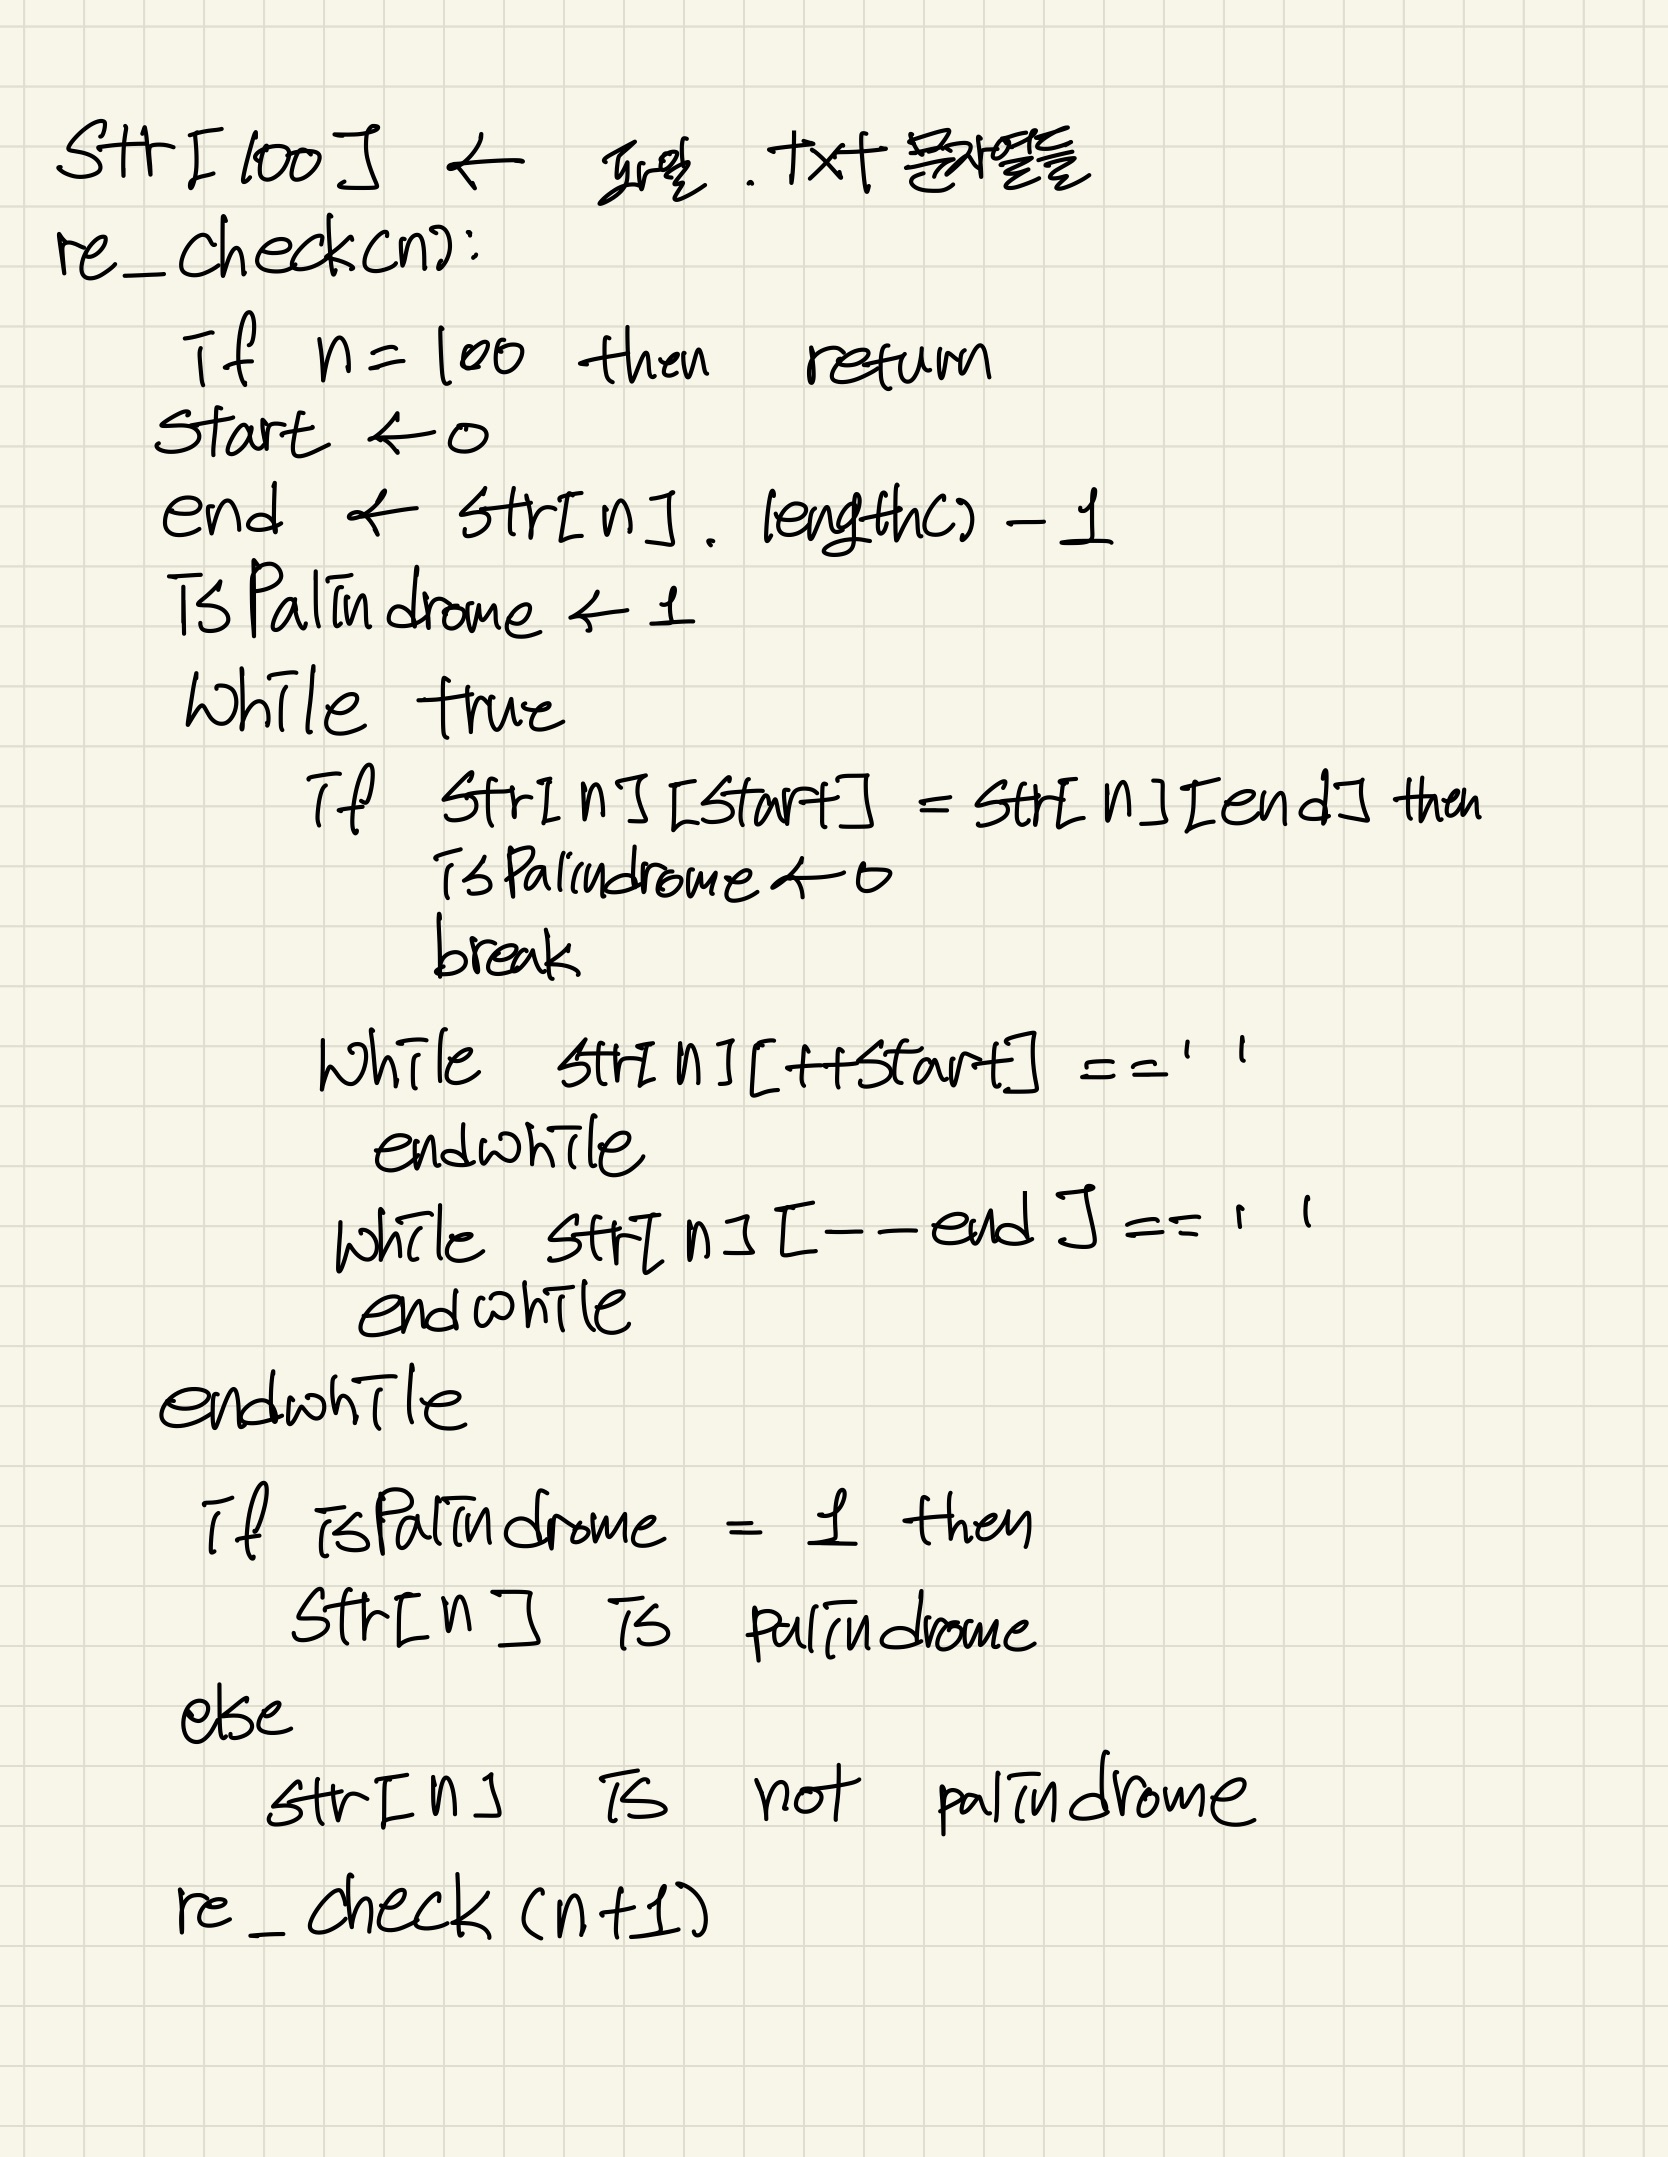 Str[100] ← .txt 문자열들
re_check(n):
if n=100 then return
start ←0
end ← str[n]. length() -1
isPalindrome ← 1
while true
if str[n][start] = str[n][end] then
isPalindrome ← 0
break
while str[n][++start] == ' '
endwhile
while str[n][--end] == ' '
endwhile
endwhile
if isPalindrome = 1 then
str[n] is palindrome
else
str[n] is not palindrome
re_check (n+1)